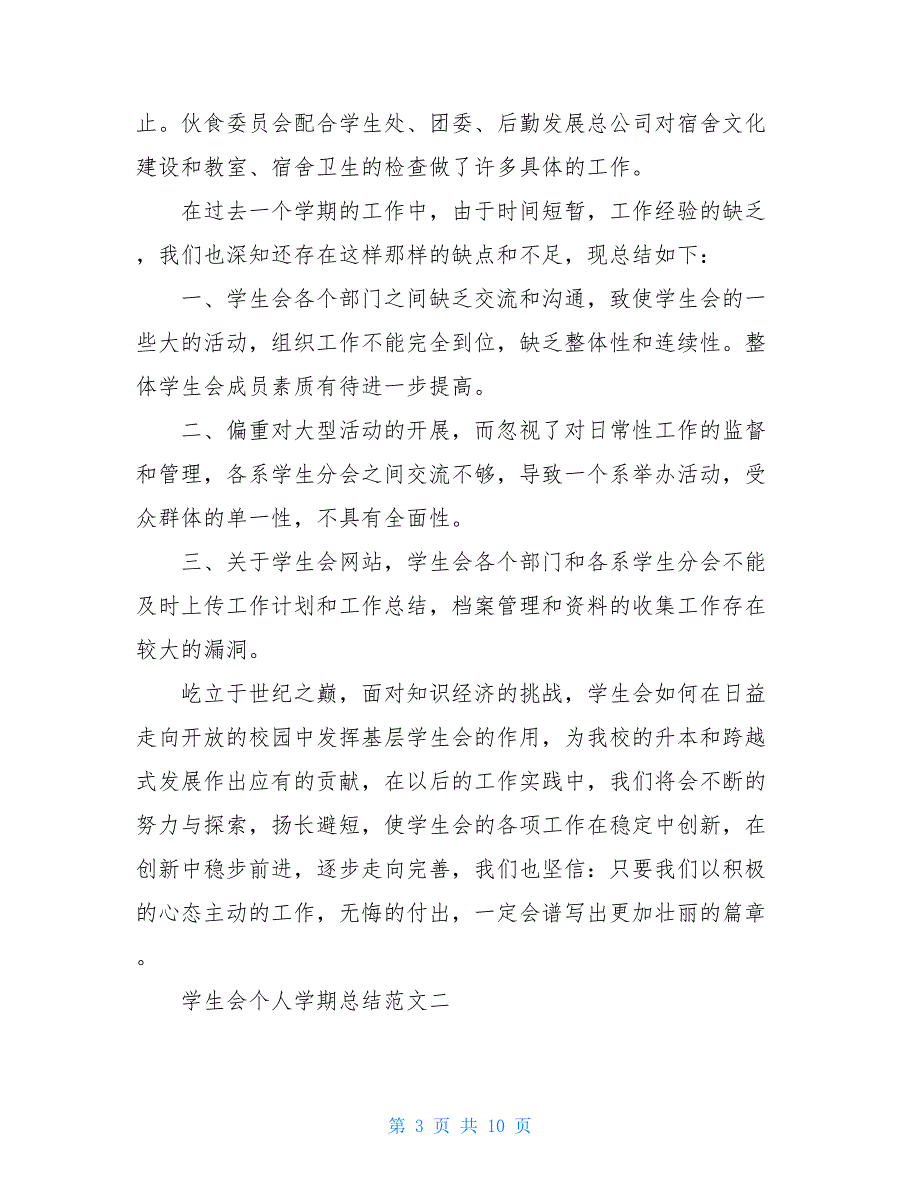 止。伙食委员会配合学生处、团委、后勤发展总公司对宿舍文化
建设和教室、宿舍卫生的检查做了许多具体的工作。
在过去一个学期的工作中，由于时间短暂，工作经验的缺乏
，我们也深知还存在这样那样的缺点和不足，现总结如下：
一、学生会各个部门之间缺乏交流和沟通，致使学生会的一
些大的活动，组织工作不能完全到位，缺乏整体性和连续性。整
体学生会成员素质有待进一步提高。
二、偏重对大型活动的开展，而忽视了对日常性工作的监督
和管理，各系学生分会之间交流不够，导致一个系举办活动，受
众群体的单一性，不具有全面性。
三、关于学生会网站，学生会各个部门和各系学生分会不能
及时上传工作计划和工作总结，档案管理和资料的收集工作存在
较大的漏洞。
屹立于世纪之巅，面对知识经济的挑战，学生会如何在日益
走向开放的校园中发挥基层学生会的作用，为我校的升本和跨越
式发展作出应有的贡献，在以后的工作实践中，我们将会不断的
努力与探索，扬长避短，使学生会的各项工作在稳定中创新，在
创新中稳步前进，逐步走向完善，我们也坚信：只要我们以积极
的心态主动的工作，无悔的付出，一定会谱写出更加壮丽的篇章
。
学生会个人学期总结范文二
第 3 页 共 10 页